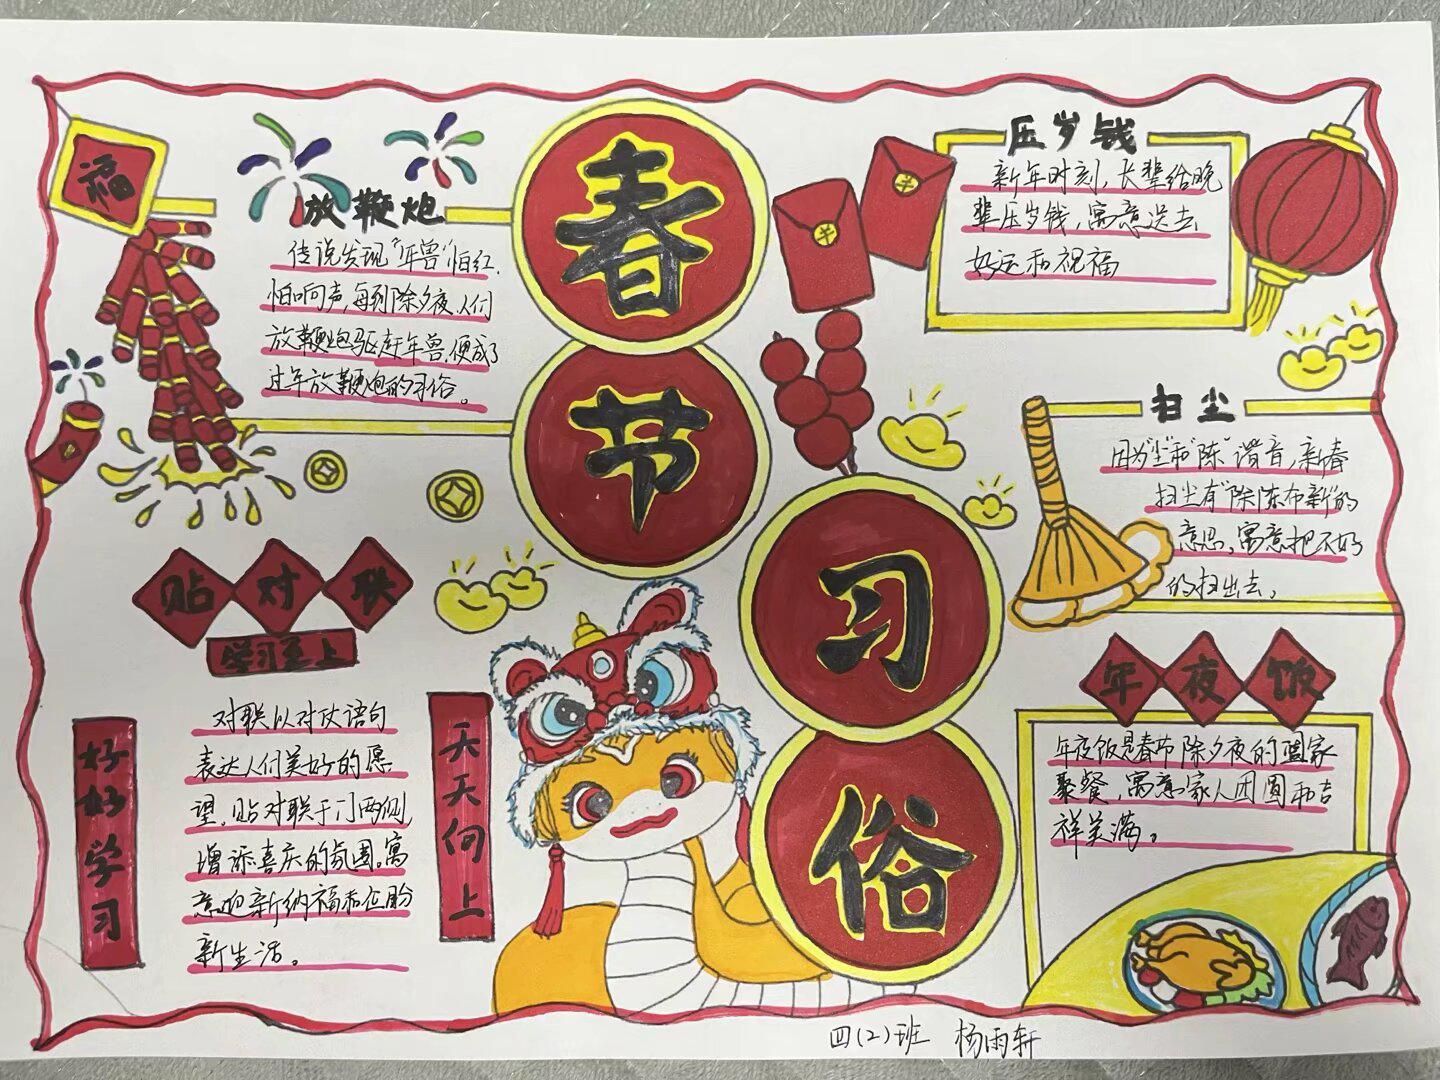 福
春
节
习
俗
放鞭炮
传说发现“年兽”怕红,
怕响声,每到除夕夜,人们
放鞭炮驱赶年兽,便成了
过年放鞭炮的习俗。
压岁钱
新年时刻,长辈给晚
辈压岁钱,寓意送去
好运和祝福
扫尘
因为“尘”和“陈”谐音,新春
扫尘有“除陈布新”的
意思,寓意把不好
的扫出去。
贴对联
学习至上
好好学习
天天向上
对联以对仗语句
表达人们美好的愿
望,贴对联于门两侧,
增添喜庆的氛围。寓
意迎新纳福和企盼
新生活。
年夜饭
年夜饭是春节除夕夜的阖家
聚餐,寓意家人团圆和吉
祥美满。
四(2)班 杨雨轩